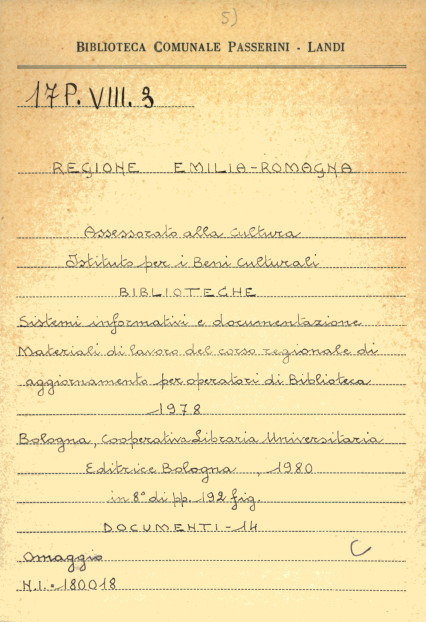 5)
BIBLIOTECA COMUNALE PASSERINI - LANDI
17 P. VIII. 3
REGIONE EMILIA-ROMAGNA
Assessorato alla Cultura
Istituto per i Beni Culturali
BIBLIOTECHE
Sistemi informativi e documentazione
Materiali di lavoro del corso regionale di
aggiornamento per operatori di Biblioteca
1978
Bologna, Cooperativa Libraria Universitaria
Editrice Bologna , 1980
in 8° di pp. 192 fig.
DOCUMENTI - 14
Omaggio C
N.I. = 180018